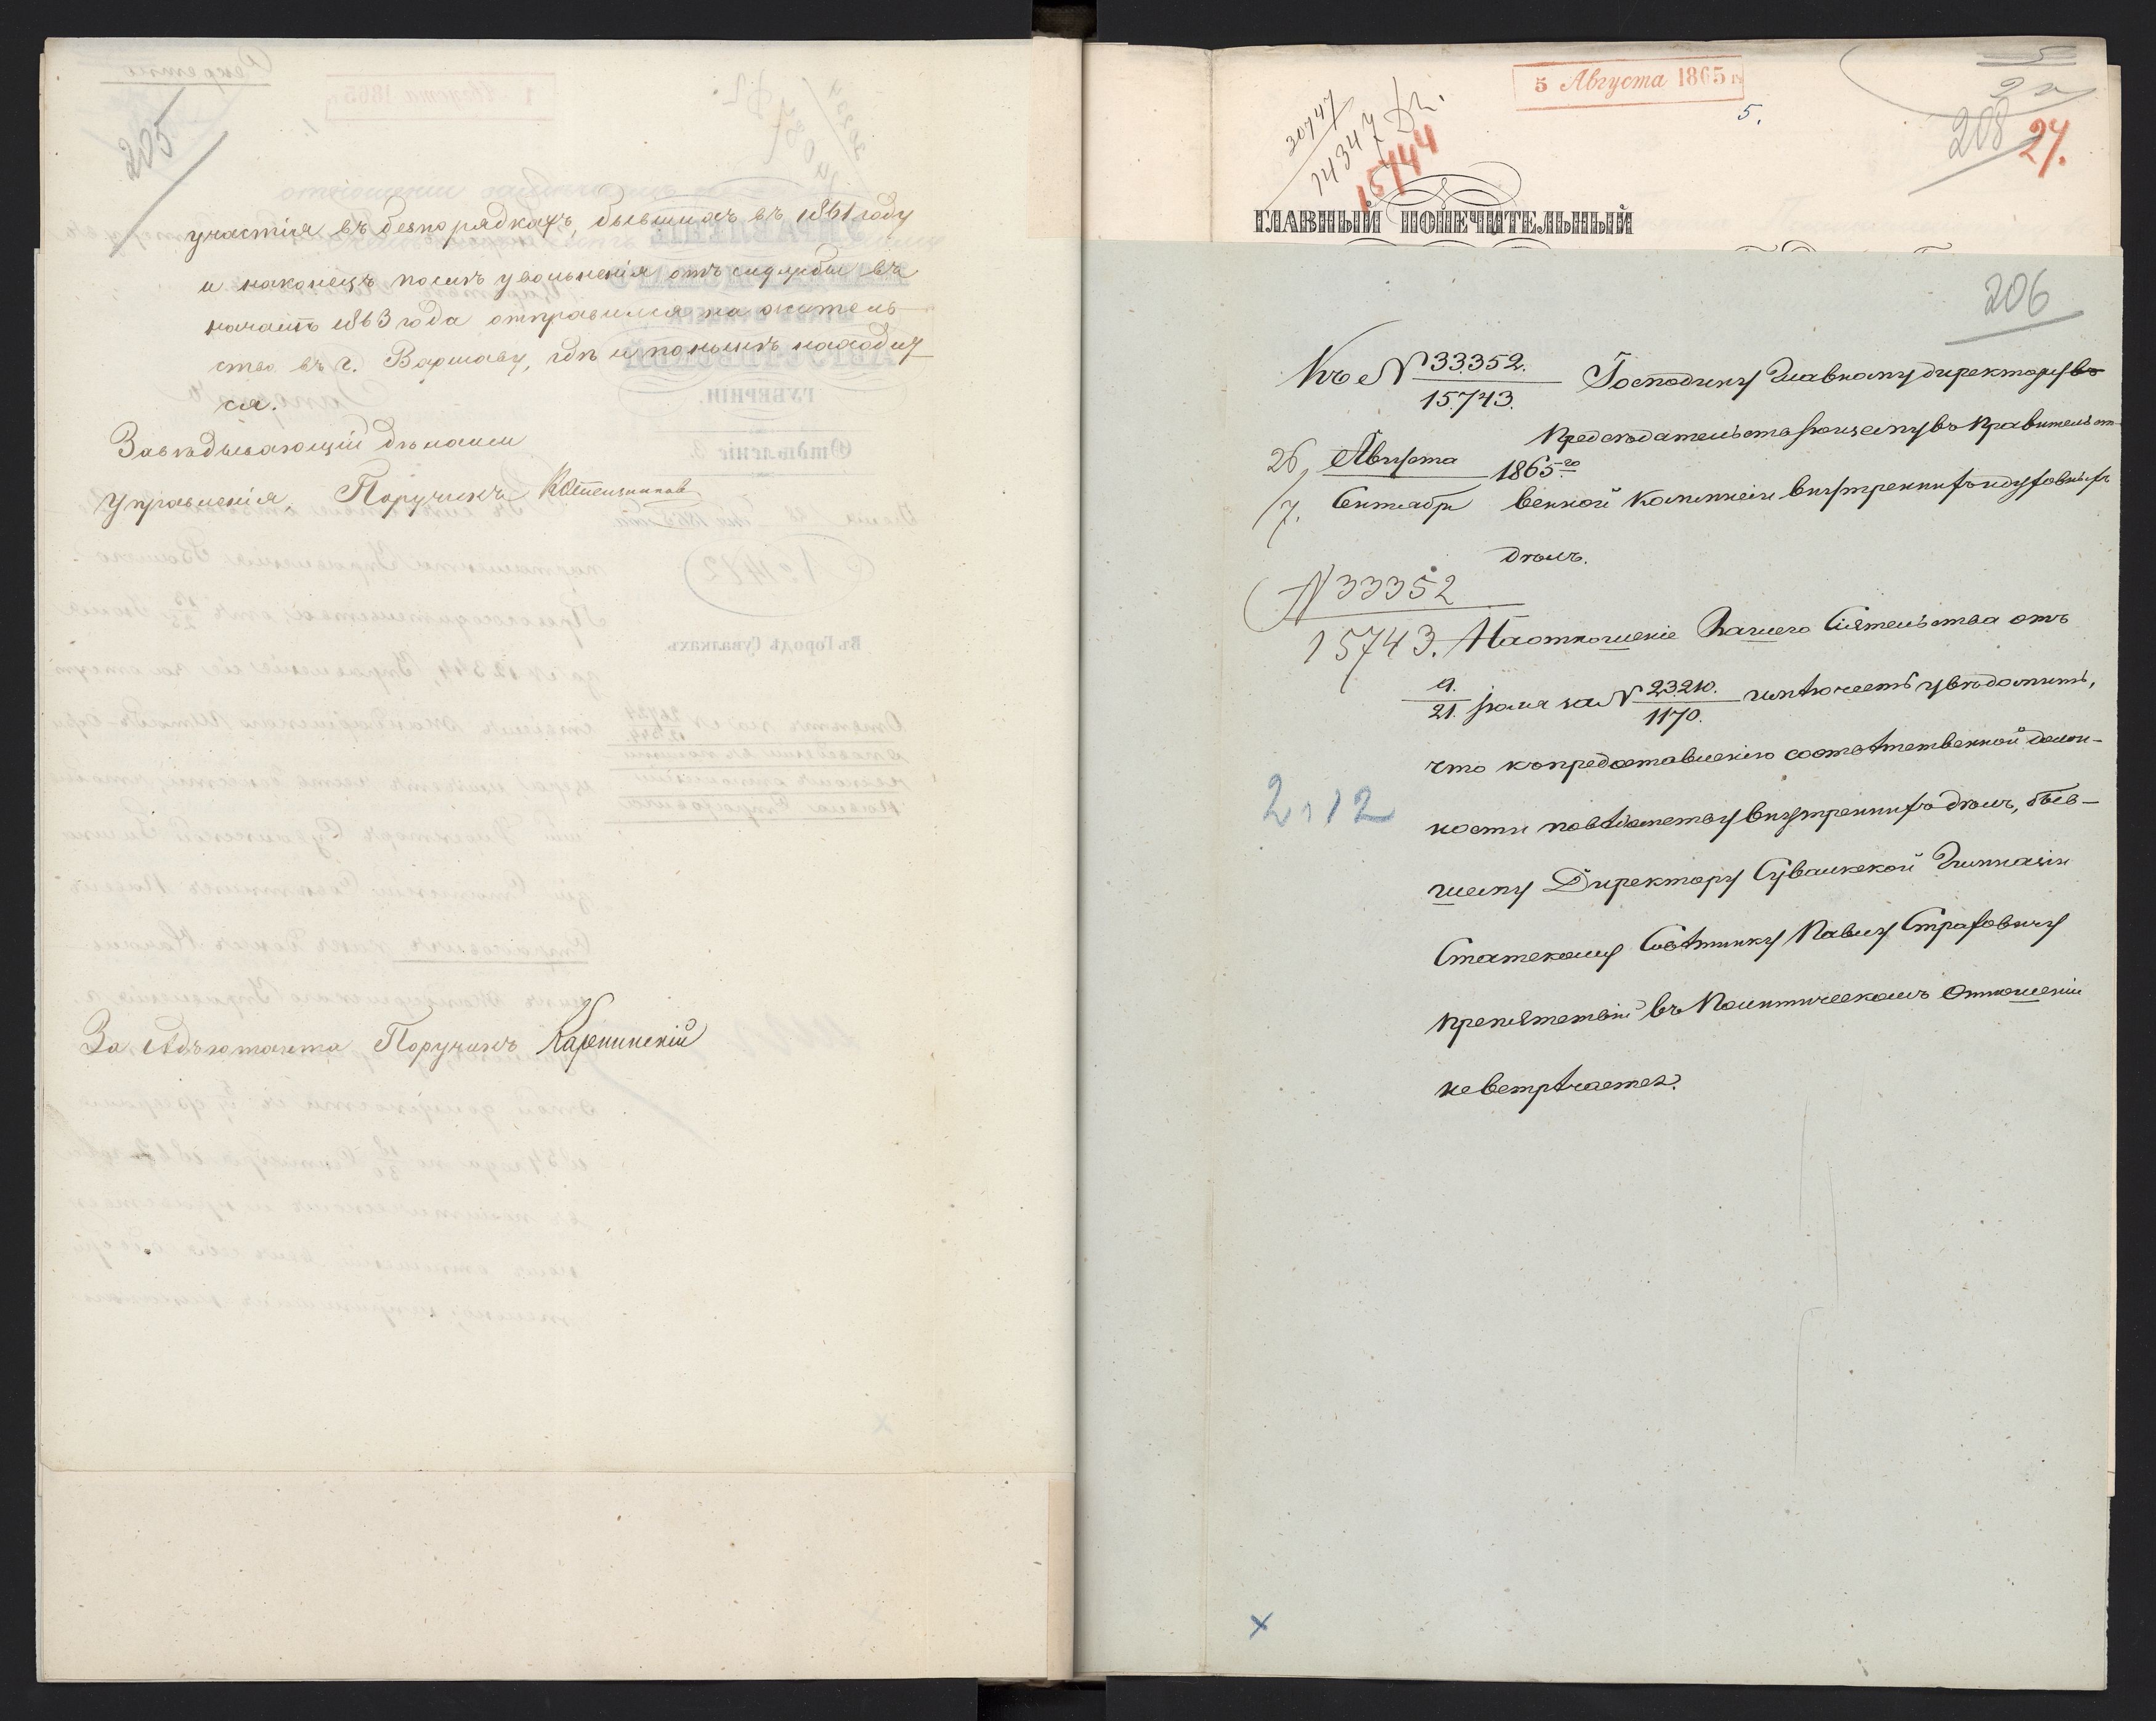 205
участія въ безпорядкахъ, бывшихъ въ 1861 году
и наконецъ послѣ увольненія отъ службы въ
началѣ 1863 года отправился на житель-
ство въ г. Варшаву, гдѣ и понынѣ находит-
ся.
Завѣдывающій дѣлами
Управленія, Поручикъ
За Адъютанта Поручикъ
5 Августа 1865 г.
5.
30747
14347
15744
208
27.
ГЛАВНЫЙ ПОПЕЧИТЕЛЬНЫЙ
206
Къ № 33352.
15743.
Господину Главному Директору
Предсѣдательствующему въ Правительст-
26 Августа
7. Сентябр 1865 го
венной Коммисіи Внутреннихъ и Духовныхъ
дѣлъ.
№ 33352
15743.
На отношеніе Вашего Сіятельства отъ
9.
21. Іюля за № 23210.
1170. имѣю честь увѣдомить,
что къ предоставленію соотвѣтственной долж-
ности по вѣдомству внутреннихъ дѣлъ, быв-
2112
шему Директору Сувалкской Гимназіи
Статскому Совѣтнику Павлу Страховичу
препятствій въ Политическомъ отношеніи
не встрѣчается.